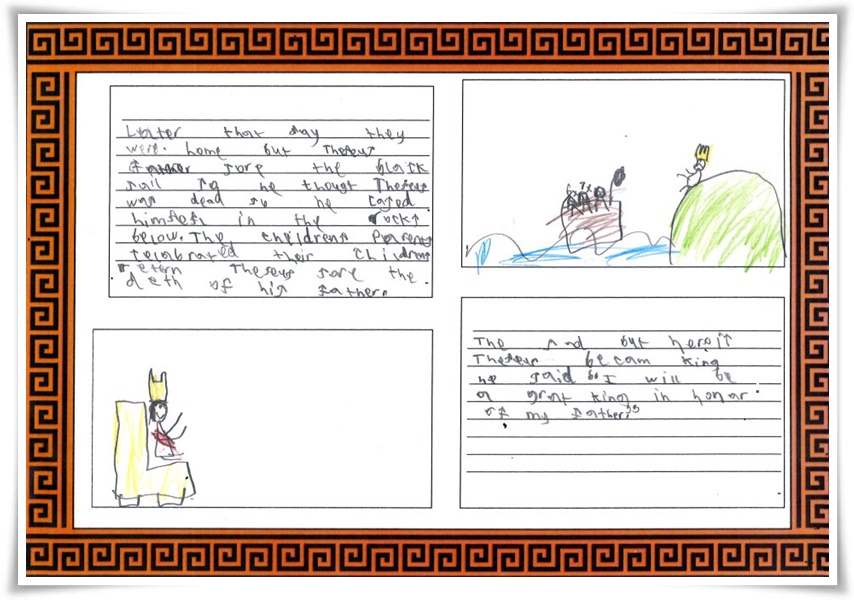 Later that day they
were. home but Theseus
father sore the black
sail so he thougt Theseus
was dead so he
himself in the rocks
below. The childrens Parents
celabrated their childrens
retern Theseus sore the
deth of his father.
The sad but
Theseus becam king
he said “I will be
a grat king in honar
of my father.”